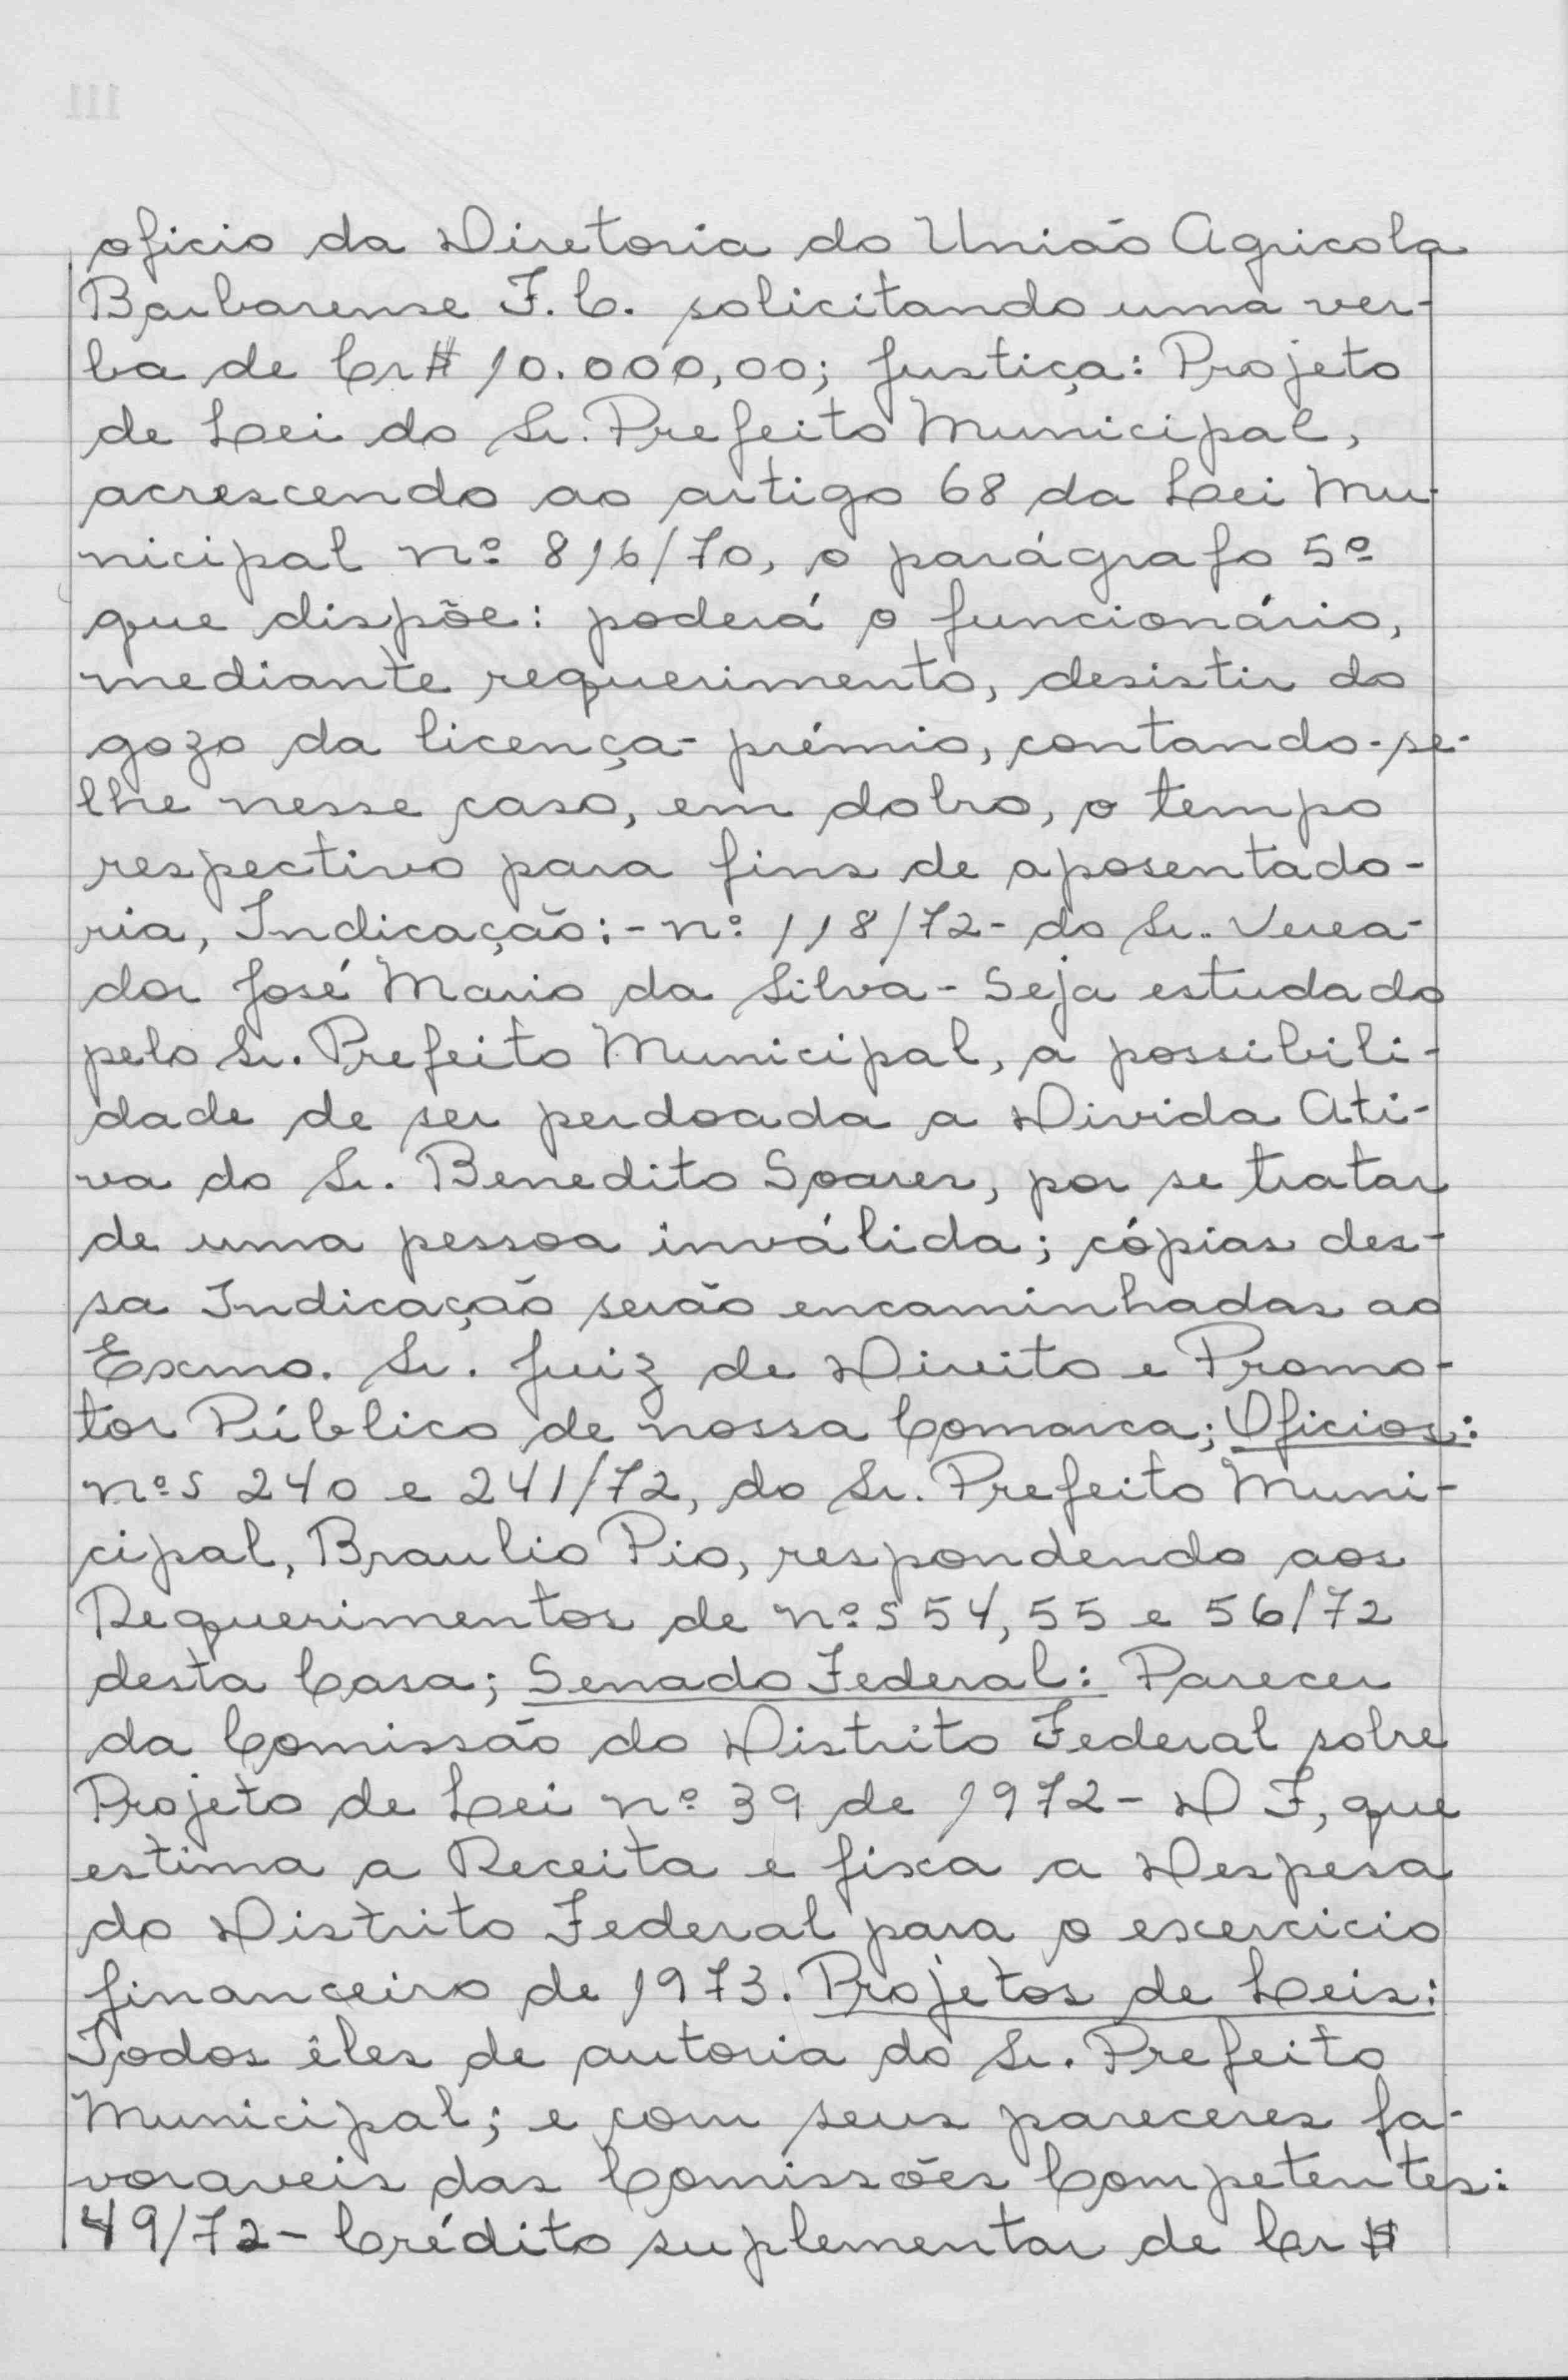 oficio da Diretoria do União Agricola
Barbarense F.C. solicitando uma ver-
ba de Cr$ 10.000,00; Justiça: Projeto
de Lei do Sr. Prefeito Municipal,
acrescendo ao artigo 68 da Lei Mu-
nicipal nº 816/70, o parágrafo 5º
que dispõe: poderá o funcionário,
mediante requerimento, desistir do
gozo da licença-prémio, contando-se-
lhe nesse caso, em dobro, o tempo
respectivo para fins de aposentado-
ria, Indicação:- nº 118/72- do Sr. Verea-
dor José Mario da Silva - Seja estudado
pelo Sr. Prefeito Municipal, a possibili-
dade de ser perdoada a Divida Ati-
va do Sr. Benedito Soares, por se tratar
de uma pessoa inválida; cópias des-
sa Indicação serão encaminhadas ao
Exmo. Sr. Juiz de Direito e Promo-
tor Público de nossa Comarca; Oficios:
nºs 240 e 241/72, do Sr. Prefeito Muni-
cipal, Braulio Pio, respondendo aos
Requerimentos de nºs 54, 55 e 56/72
desta Casa; Senado Federal: Parecer
da Comissão do Distrito Federal sobre
Projeto de Lei nº 39 de 1972- D F, que
estima a Receita e fixa a Despesa
do Distrito Federal para o exercicio
financeiro de 1973. Projetos de Leis:
Todos êles de autoria do Sr. Prefeito
Municipal; e com seus pareceres fa-
voraveis das Comissões Competentes:
49/72- Crédito suplementar de Cr$